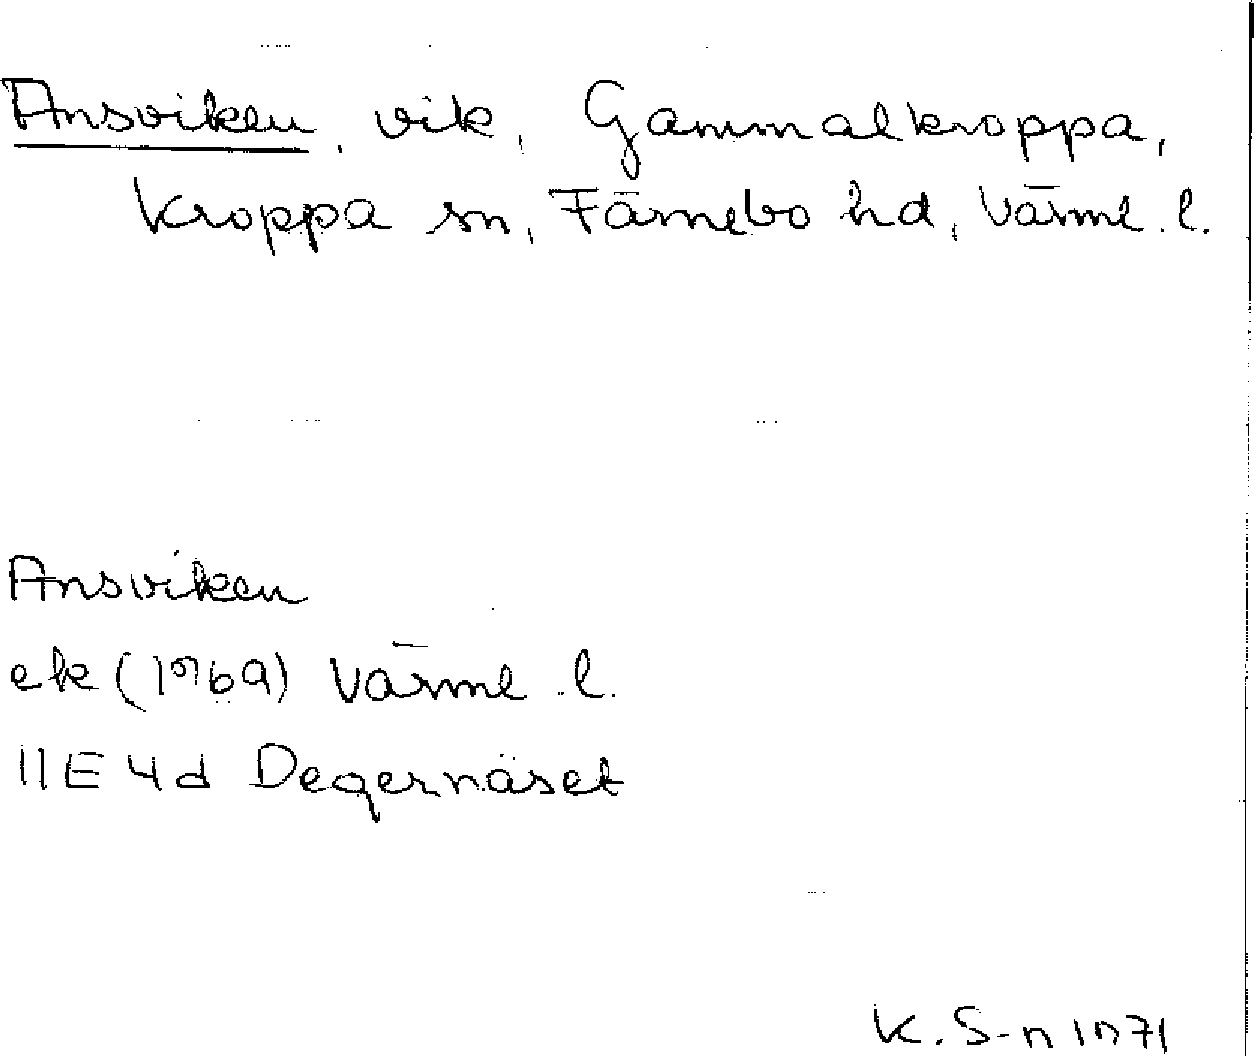 Ansviken, vik, Gammalkroppa,
Kroppa sn, Färnebo hd, Värml. l.
Ansviken
ek (1969) Värml. l.
11E 4d Degernäset
K. S-n 1971